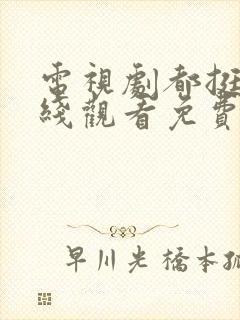 電視劇都挺
綫觀看免費
早川光橋本孤